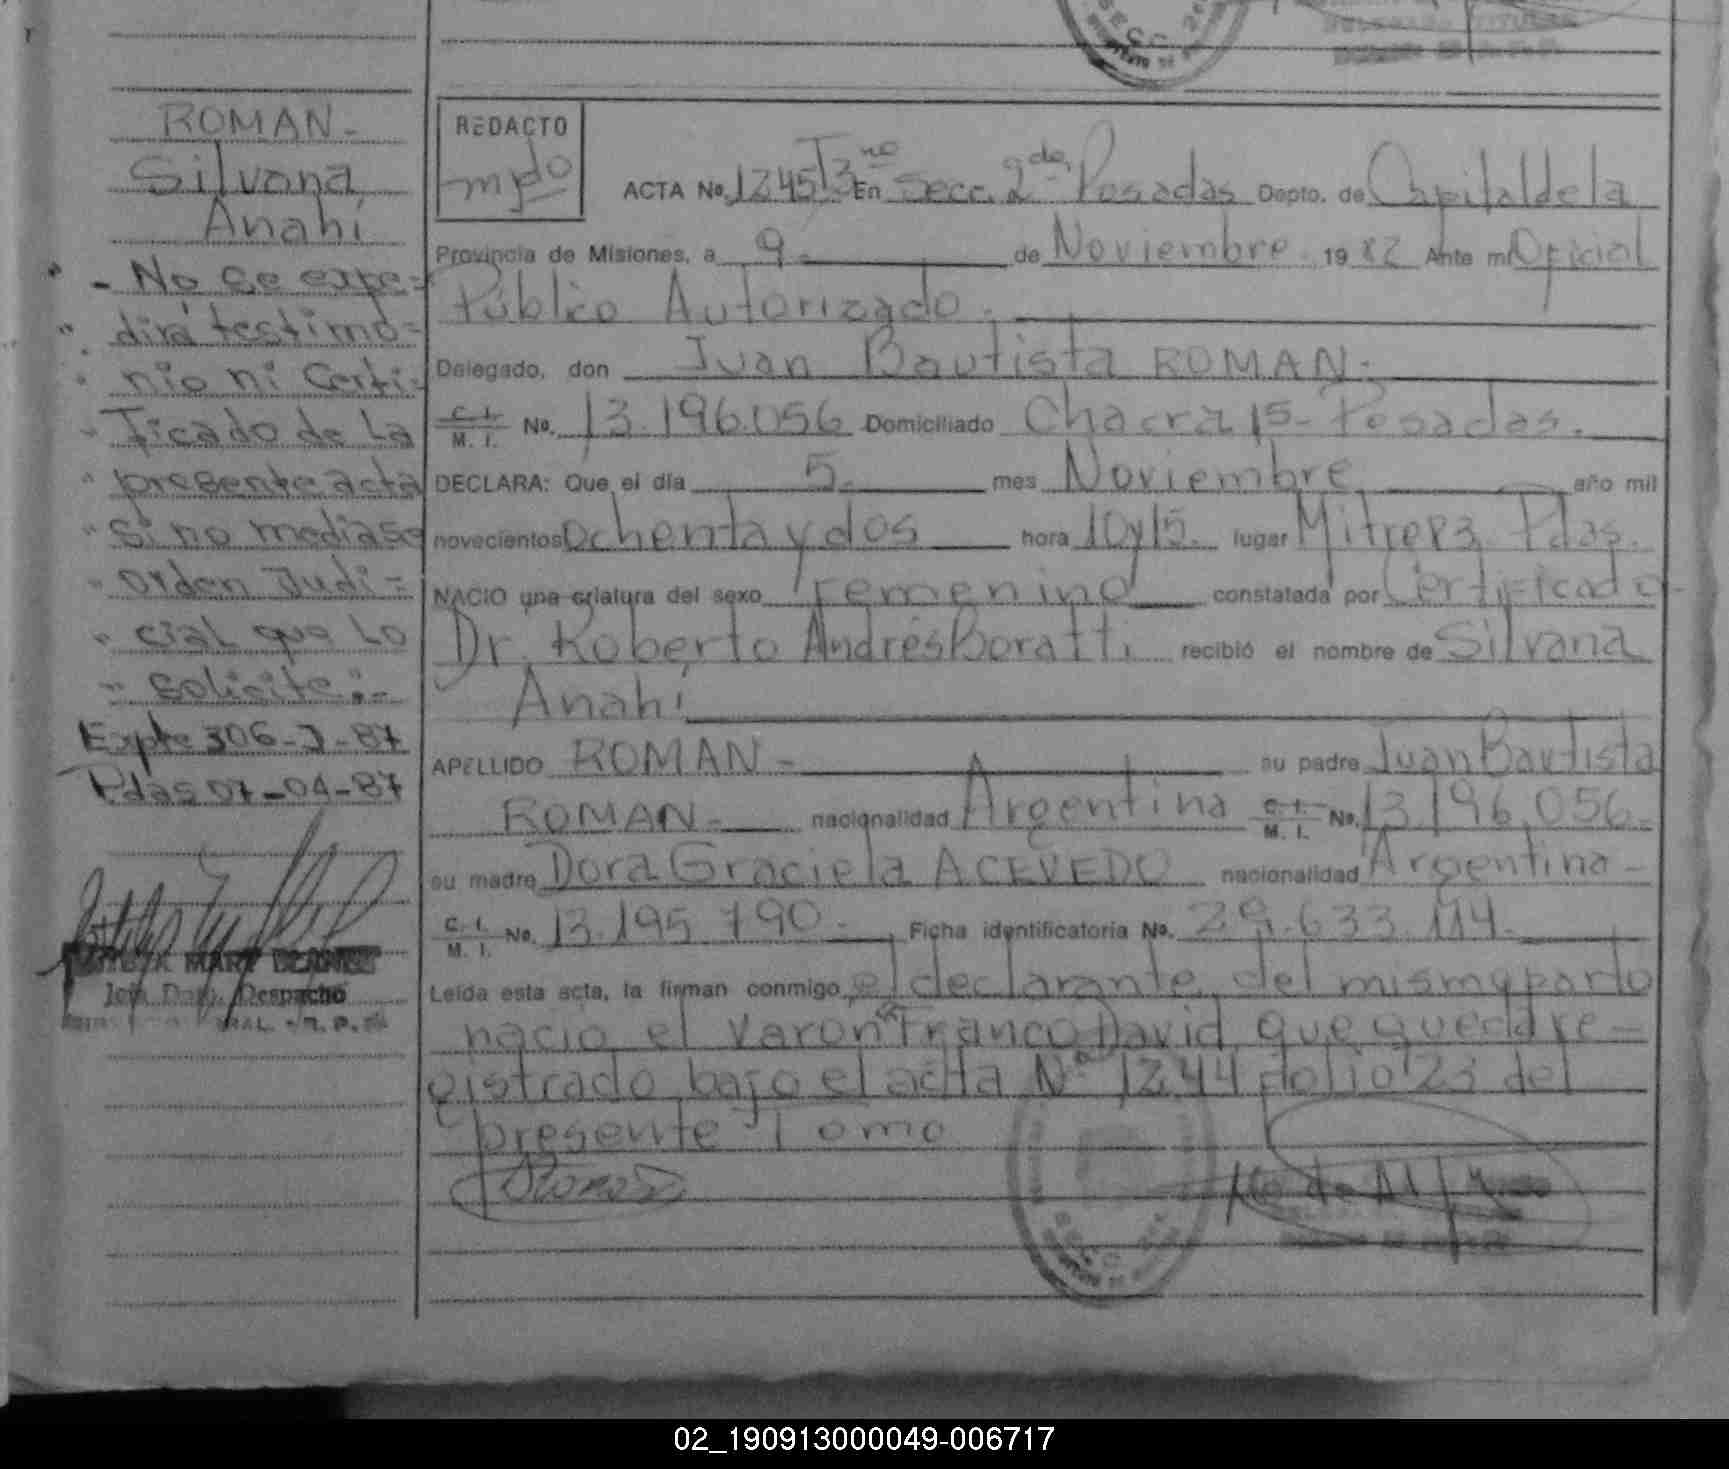 ROMAN-
Silvana
Anahí
- No se expe=
" dirá testimo=
" nio ni Certi=
" ficado de La
" presente acta
" si no mediase
" orden Judi=
" cial que Lo
" solicite:-
Expte 306-J-87
Pdas 07-04-87
MARY
Jefa Dpto. Despacho
REDACTO
ACTA No. 1245 Tº 3ro En Secc. 2da. Posadas Depto. de Capital de la
Provincia de Misiones, a 9- de Noviembre. 1982 Ante mí Oficial
Público Autorizado.
Delegado, don Juan Bautista ROMAN.-
C. I. M. I. No. 13.196.056 Domiciliado Chacra 15- Posadas.
DECLARA: Que el día 5- mes Noviembre año mil
novecientos ochenta y dos hora 10y15. lugar Mitre 83 Pdas.
NACIO una criatura del sexo femenino constatada por Certificado-
Dr. Roberto Andrés Boratti recibió el nombre de Silvana
Anahí
APELLIDO ROMAN- su padre Juan Bautista
ROMAN- nacionalidad Argentina C. I. M. I. No. 13.196.056-
su madre Dora Graciela ACEVEDO nacionalidad Argentina-
C. I. M. I. No. 13.195.790.- Ficha identificatoria No. 29.633.114.-
Leída esta acta, la firman conmigo, el declarante, del mismo parto
nacio el varon "Franco David, que queda re-
gistrado bajo el acta Nº 1244 folio 23 del
presente Tomo
02_190913000049-006717